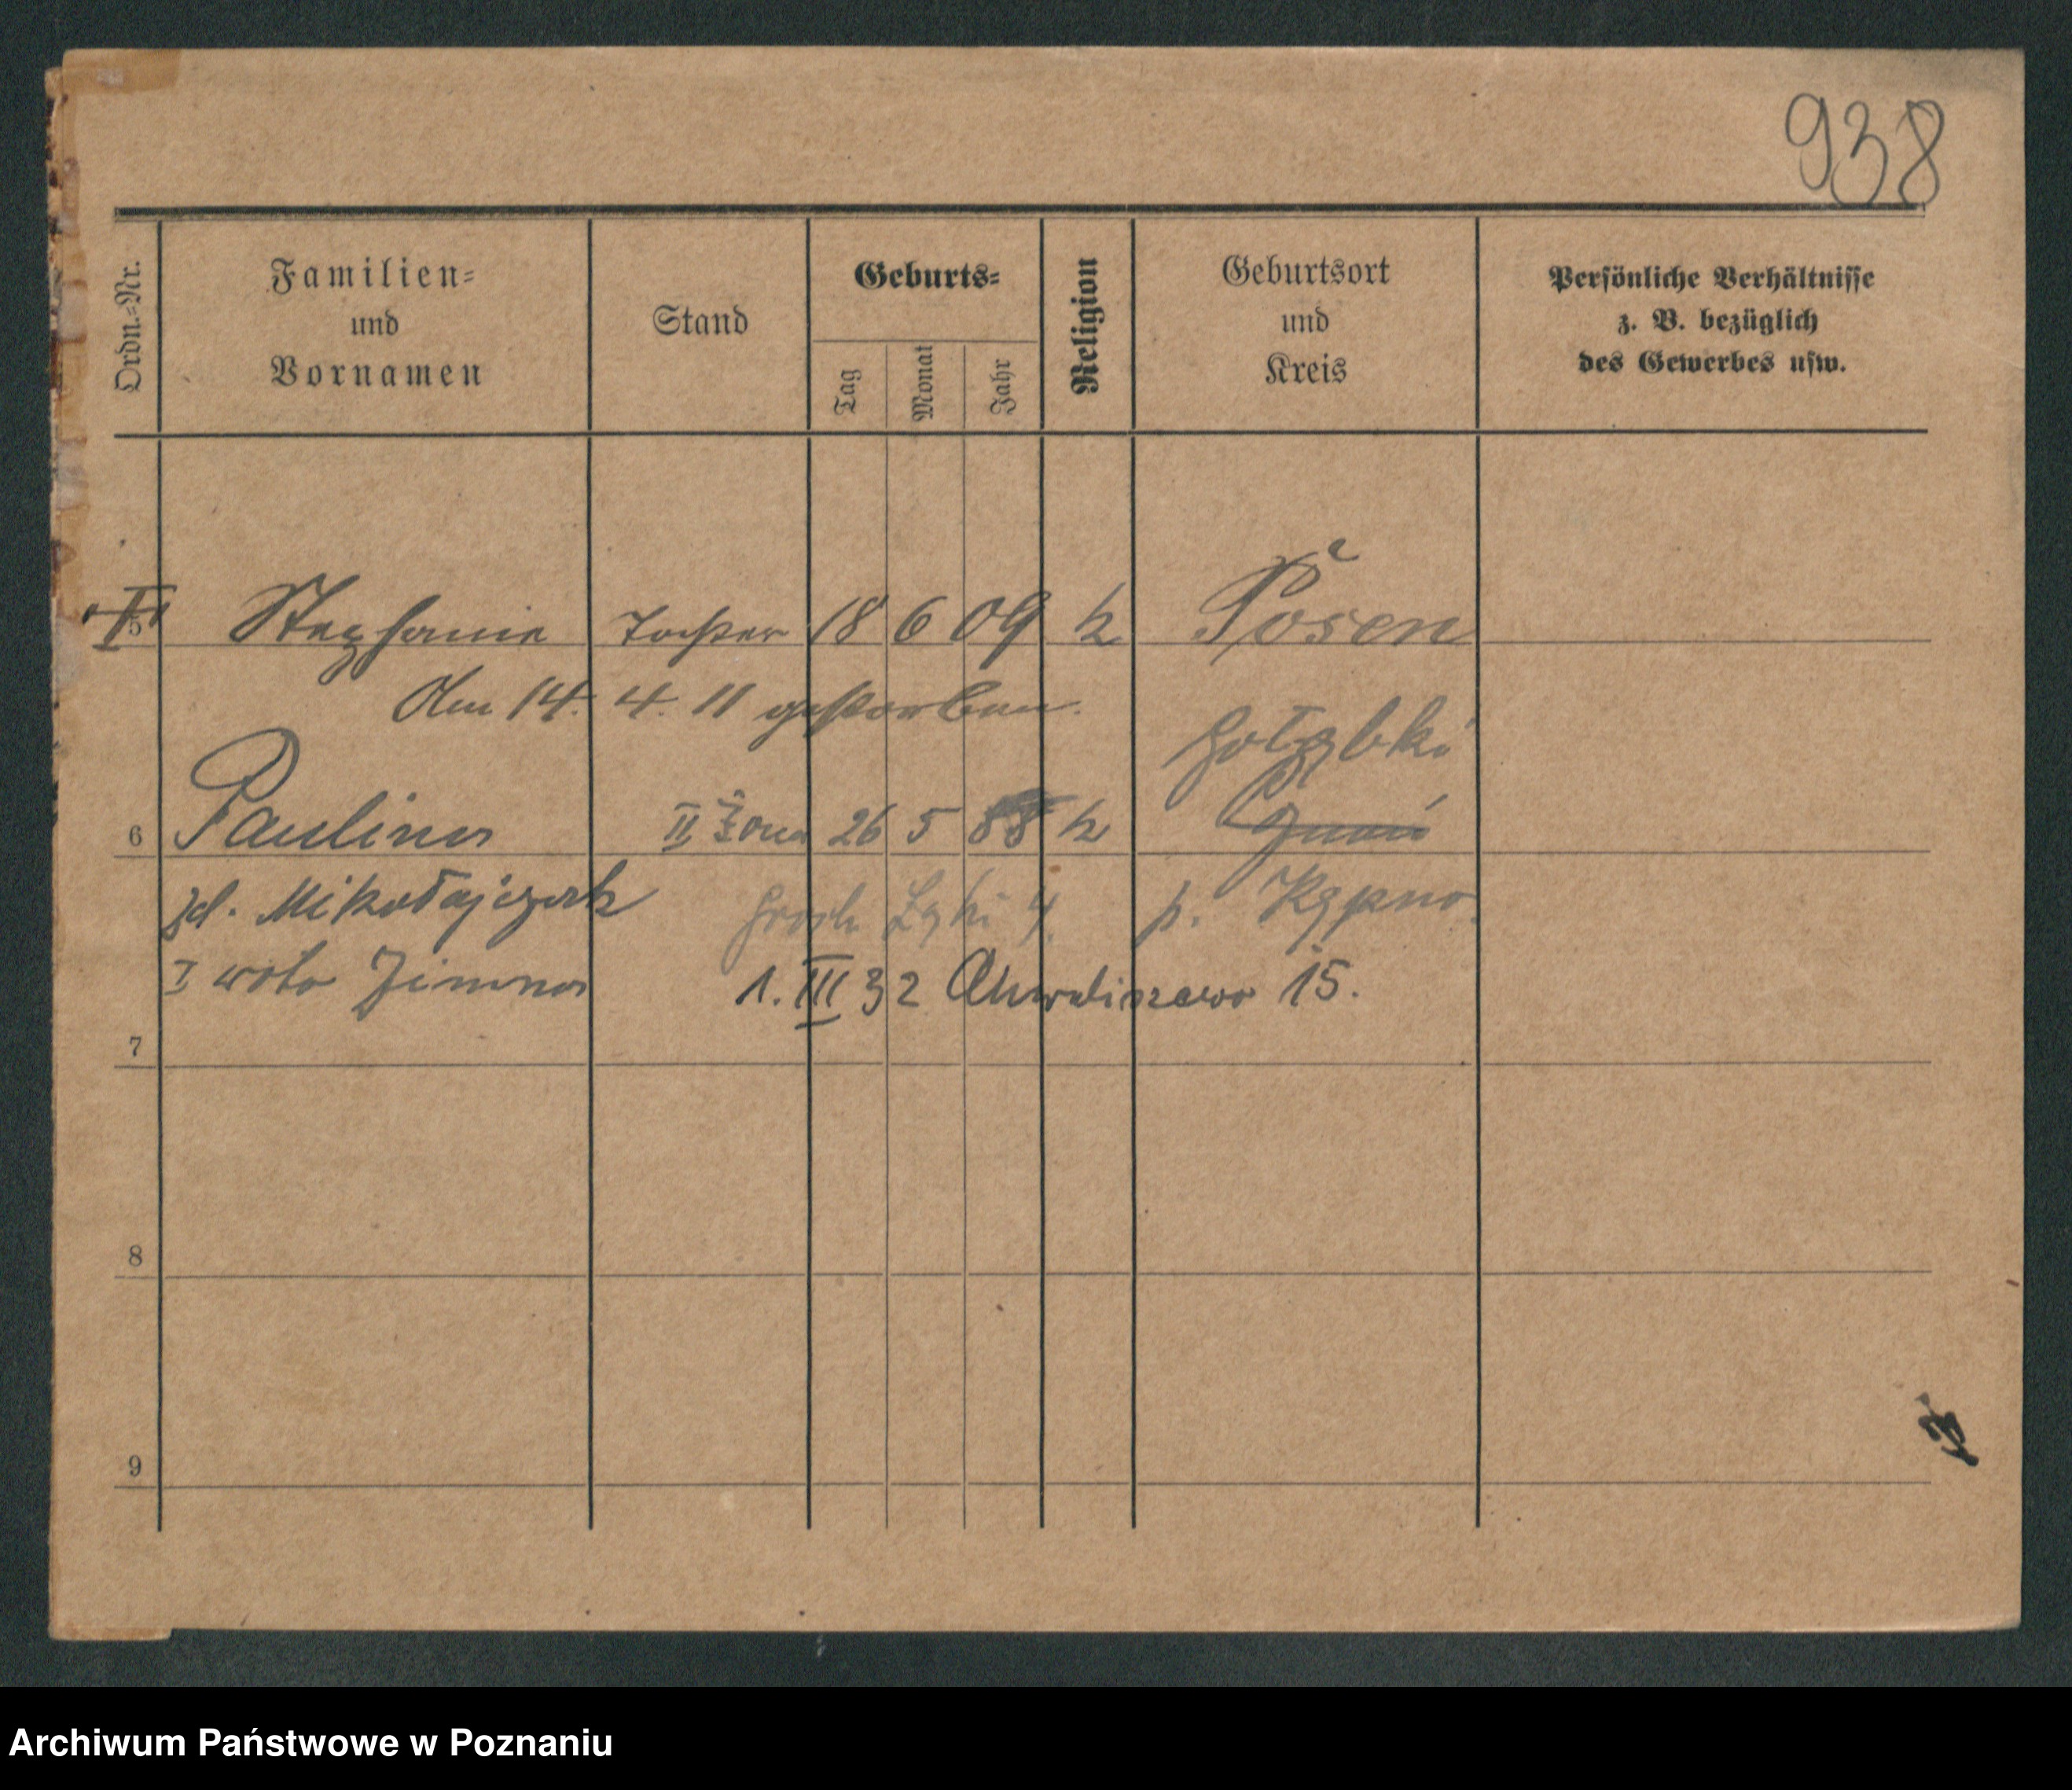 938
Ordn.-Nr.
Familien-
und
Vornamen
Stand
Geburts-
Tag
Monat
Jahr
Religion
Geburtsort
und
Kreis
Persönliche Verhältnisse
z. B. bezüglich
des Gewerbes usw.
5 Stephanie Tochter 18 6 09 k Posen
Am 14. 4. 11 gestorben.
Gołąbki
6 Paulina II żona 26 5 88 k
zd. Mikołajczak Groch. Łąki 4 p. Kępno
I voto Zimna 1. III 32 Chwaliszewo 15.
7
8
9
Archiwum Państwowe w Poznaniu